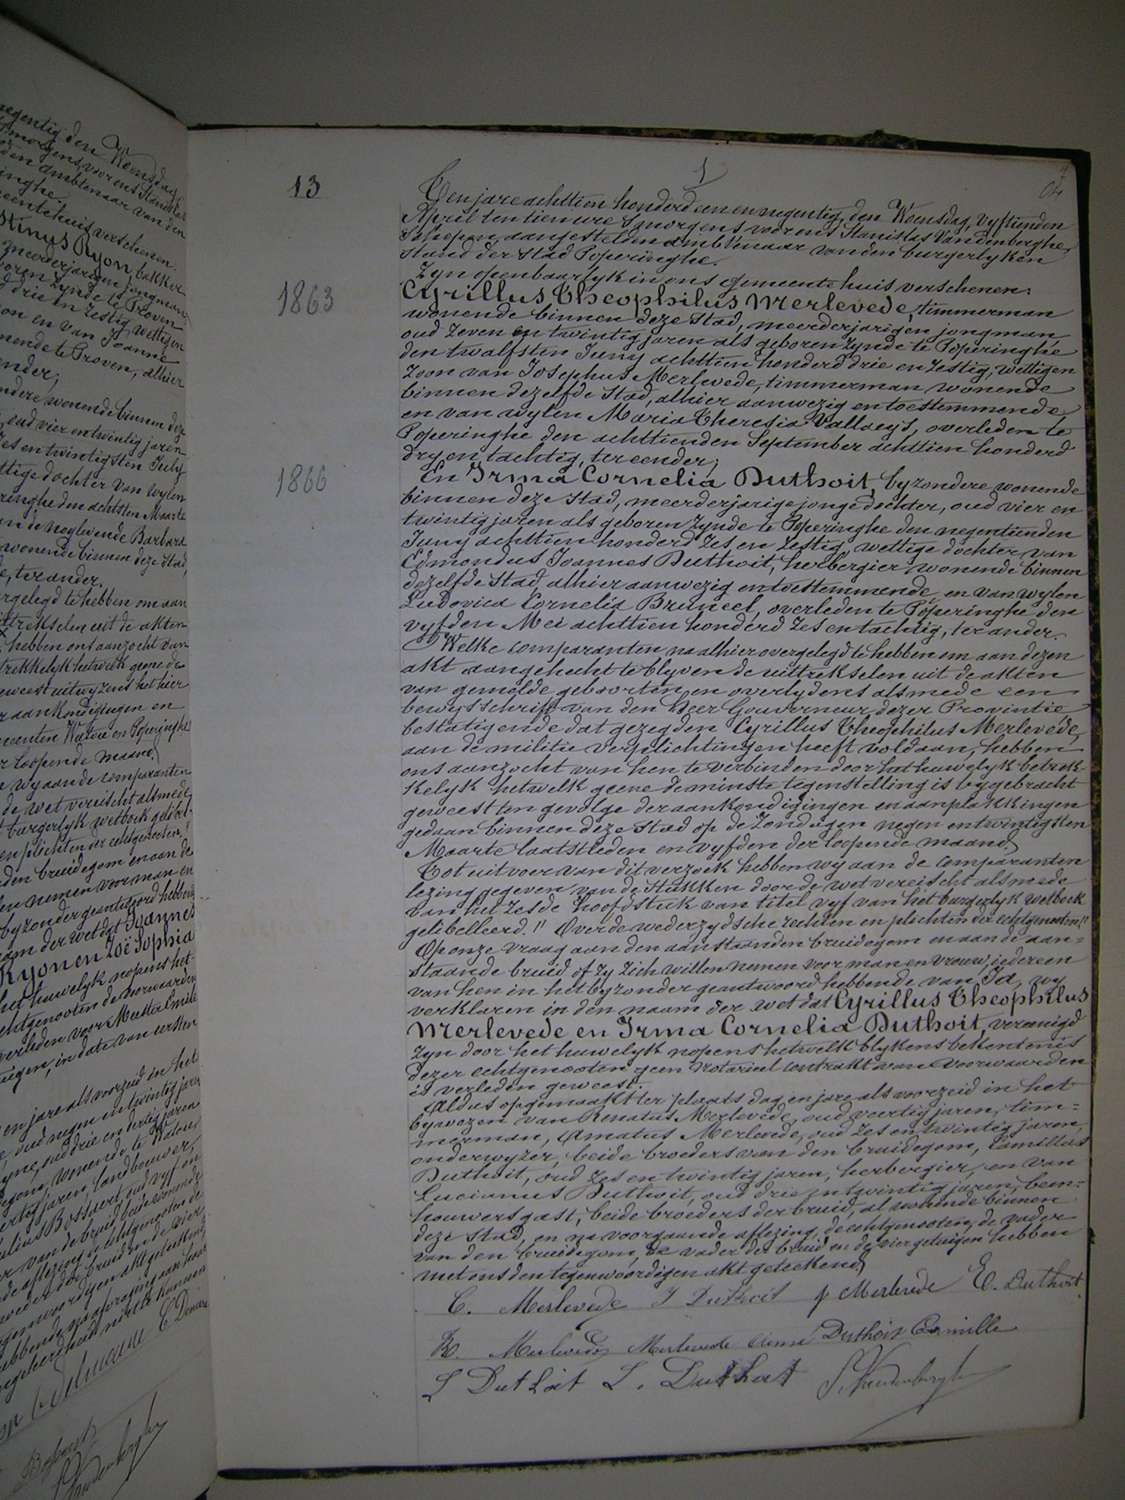 negentig, den Woensdag
s'morgens, voor ons Stanislas
den Ambtenaar van den
inghe.
eentehuis verschenen:
stinus Ryon, bakker
meerderjarigen jongman
boren zynde te Proven
drie en zestig, wettigen
on en van Joanne
nende te Proven, alhier
ender;
ndere wonende binnen deze
oud vier en twintig jaren
zes en twintigsten July
ttige dochter van wylen
ringhe den achtsten Maarte
Barbara
wonende binnen deze Stad,
ter ander.
rgelegd te hebben om aan
trekselen uit de akten
hebben ons aanzocht van
trekkelyk hetwelk geene de
geweest uitwyzens het hier
r aankondigingen en
eenten Watou en Poperinghe
r loopende maand;
wy aan de comparanten
de wet vereischt alsmede
burgerlyk wetboek gelibel-
en plichten der echtgenooten."
den bruidegom en aan de
len nemen voor man en
byzonder geantwoord hebbende
am der wet dat Joannes
Ryon en Zoë Sophia
het huwelyk nopens het
echtgenooten de voorwaarden
verleden voor Meester Emile
in date van eersten
en jare als voorzeid en het
oud negen en twintig jaren
oud drie en dertig jaren
wonende te Watou
ertig jaren, landbouwer,
ulius Bossaert, oud vyf en
r van de bruid, beide wonende
de aflezing de echtgenooten de
oeder der bruid en de vier
genwoordigen akt geteekend
hebbende na afvraging aan haar
C Deniere
Bossaert
S. Vandenberghe
13
1
04
Ten jare achttien honderd een en negentig, den Woensdag vyftienden
April ten tien ure s'morgens voor ons Stanislas Vandenberghe,
Schepen, aangestelden Ambtenaar van den burgerlyken
stand der Stad Poperinghe.
Zyn openbaarlyk in ons gemeente huis verschenen:
1863
Cyrillus Theophilus Merlevede, timmerman
wonende binnen deze Stad, meerderjarigen jongman
oud zeven en twintig jaren als geboren zynde te Poperinghe
den twalfsten Juny achttien honderd drie en zestig, wettigen
zoon van Josephus Merlevede, timmerman wonende
binnen dezelfde Stad, alhier aanwezig en toestemmende
en van wylen Maria Theresia Vallaeys, overleden te
Poperinghe den achttienden September achttien honderd
dry en tachtig, ter eender;
1866
En Irma Cornelia Duthoit, byzondere wonende
binnen deze Stad, meerderjarige jonge dochter, oud vier en
twintig jaren als geboren zynde te Poperinghe den negentienden
Juny achttien honderd zes en zestig, wettige dochter van
Edmondus Joannes Duthoit, herbergier, wonende binnen
dezelfde Stad, alhier aanwezig en toestemmende, en van wylen
Ludovica Cornelia Bruneel, overleden te Poperinghe den
vyfden Mei achttien honderd zes en tachtig, ter ander.
Welke comparanten na alhier overgelegd te hebben om aan dezen
akt aangehecht te blyven de uittrekselen uit de akten
van gemelde geboorten en overlydens alsmede een
bewysschrift van den Heer Gouverneur dezer Provintie
bestatigende dat gezegden Cyrillus Theophilus Merlevede,
aan de militie verplichtingen heeft voldaan, hebben
ons aanzocht van hen te verbinden door het huwelyk betrek-
kelyk hetwelk geene de minste tegenstelling is bygebracht
geweest ten gevolge der aankondigingen en aanplakkingen
gedaan binnen deze Stad op de Zondagen negen en twintigsten
Maarte laatstleden en vyfden der loopende maand;
Tot uitvoer van dit verzoek hebben wy aan de comparanten
lezing gegeven van de stukken door de wet vereischt alsmede
van het zesde hoofdstuk van titel vyf van het burgerlyk wetboek
gelibelleerd: "Over de wederzydsche rechten en plichten der echtgenooten."
Op onze vraag aan den aanstaanden bruidegom en aan de aan-
staande bruid of zy zich willen nemen voor man en vrouw, iedereen
van hen in het byzonder geantwoord hebbende van Ja, wy
verklaren in den naam der wet dat Cyrillus Theophilus
Merlevede en Irma Cornelia Duthoit, vereenigd
zyn door het huwelyk nopens hetwelk blykens bekentenis
dezer echtgenooten geen notarieel contrakt van voorwaarden
is verleden geweest.
Aldus opgemaakt ter plaats dag en jare als voorzeid in het
bywezen van Renatus Merlevede, oud veertig jaren, tim-
merman, Amatus Merlevede, oud zes en twintig jaren,
onderwyzer, beide broeders van den bruidegom, Camillus
Duthoit, oud zes en twintig jaren, herbergier, en van
Lucianus Duthoit, oud drie en twintig jaren, been-
houwersgast, beide broeders der bruid, al wonende binnen
deze Stad, en na voorgaande aflezing, de echtgenooten, de vader
van den bruidegom, de vader der bruid en de vier getuigen hebben
met ons den tegenwoordigen akt geteekend;
C. Merlevede I Duthoit p Merlevede E. Duthoit
R. Merlevede Merlevede Aimé Duthoit Camille
L Duthoit L. Duthoit S. Vandenberghe